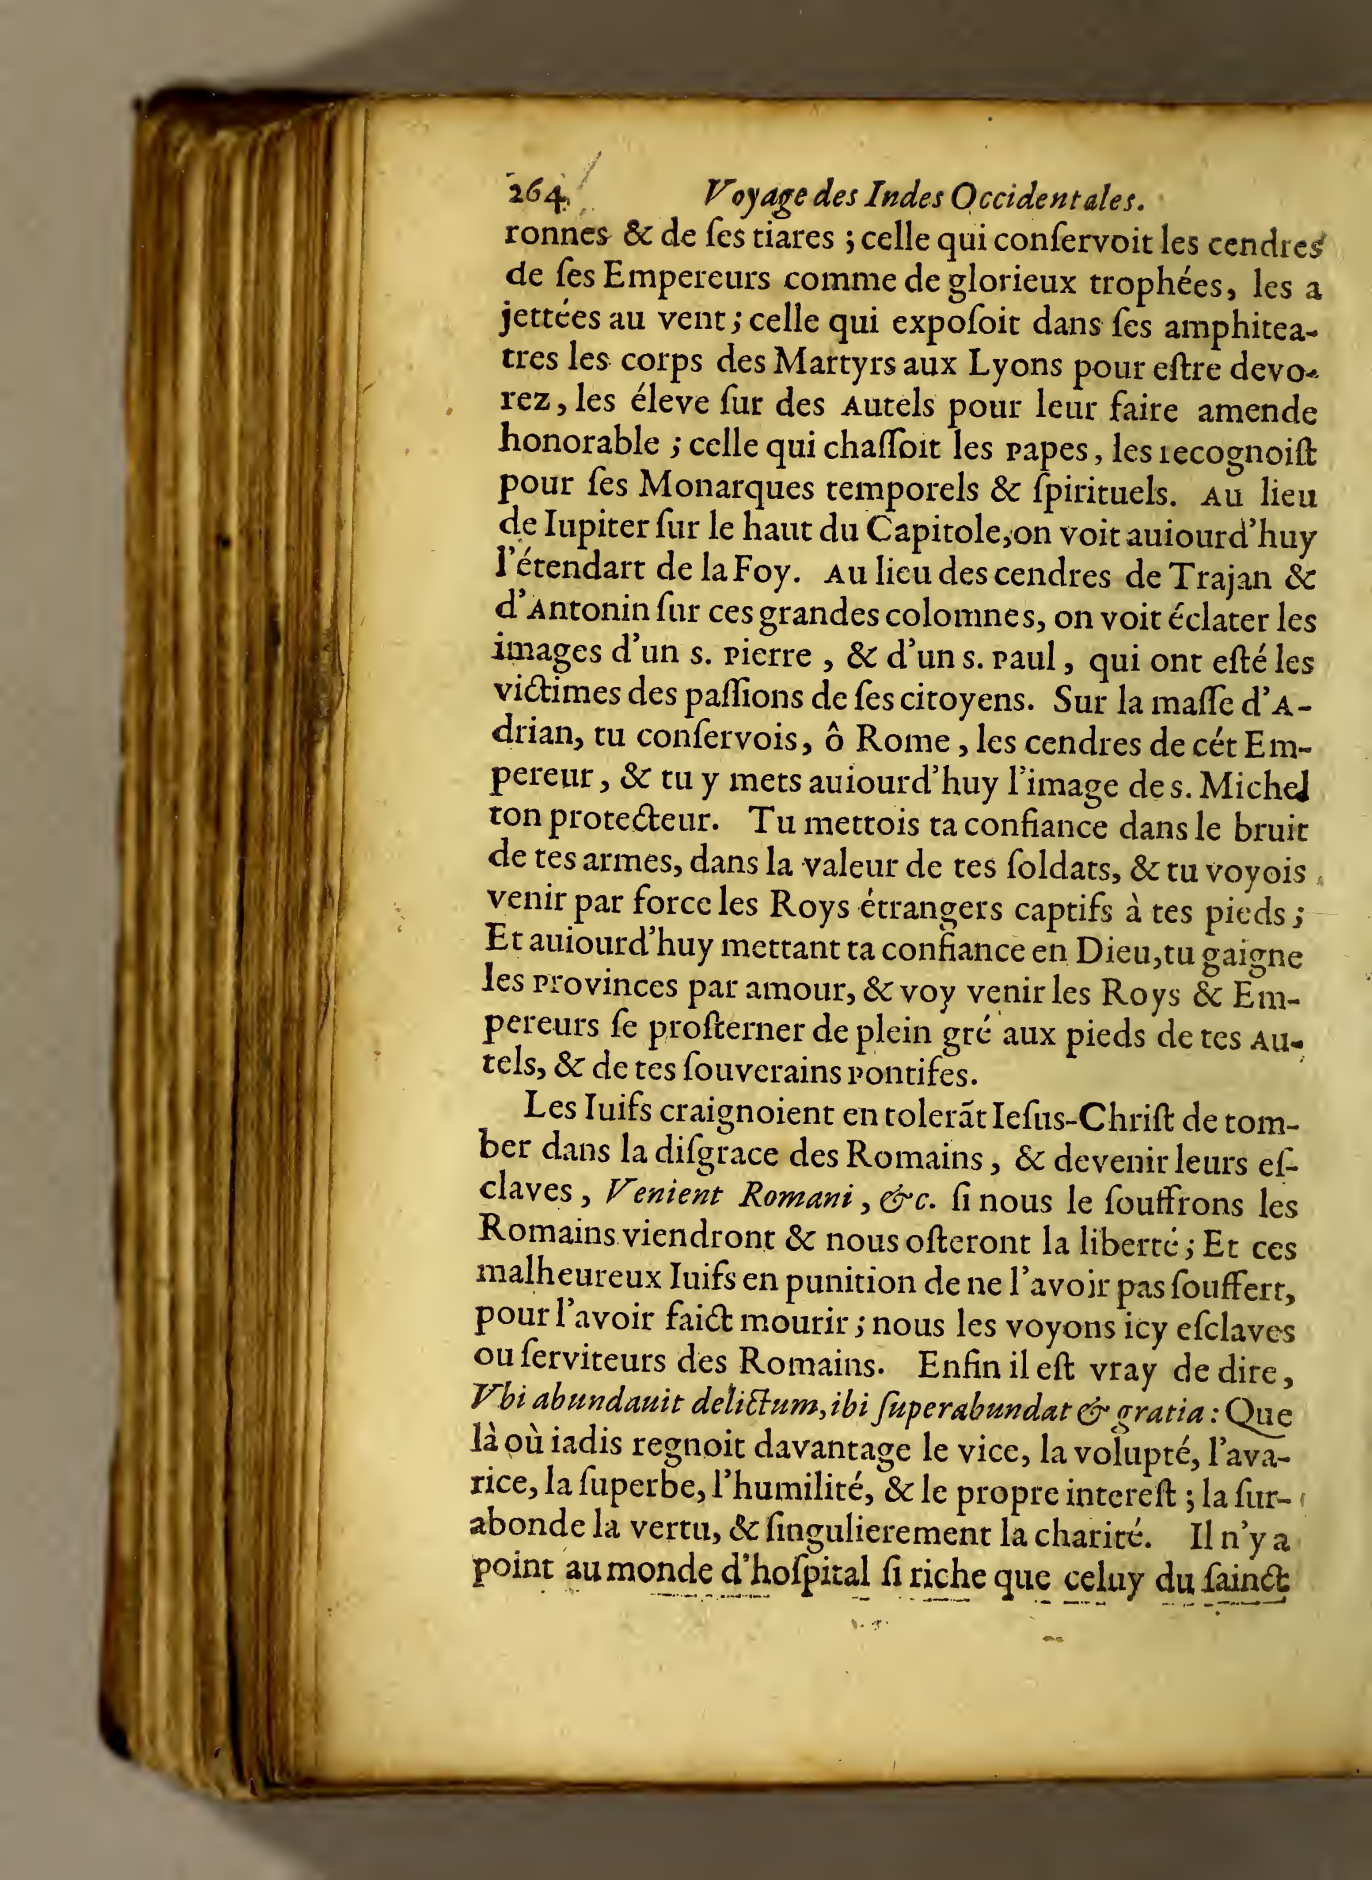 264 Voyage des Indes Occidentales.
ronnes & de ſes tiares ; celle qui conſervoit les cendres
de ſes Empereurs comme de glorieux trophées, les a
jettées au vent ; celle qui expoſoit dans ſes amphitea-
tres les corps des Martyrs aux Lyons pour eſtre devo-
rez, les éleve ſur des Autels pour leur faire amende
honorable ; celle qui chaſſoit les Papes, les recognoiſt
pour ſes Monarques temporels & ſpirituels. Au lieu
de Iupiter ſur le haut du Capitole, on voit auiourd'huy
l'étendart de la Foy. Au lieu des cendres de Trajan &
d'Antonin ſur ces grandes colomnes, on voit éclater les
images d'un S. Pierre , & d'un S. Paul , qui ont eſté les
victimes des paſſions de ſes citoyens. Sur la maſſe d'A-
drian, tu conſervois, ô Rome , les cendres de cét Em-
pereur , & tu y mets auiourd'huy l'image de S. Michel
ton protecteur. Tu mettois ta confiance dans le bruit
de tes armes, dans la valeur de tes ſoldats, & tu voyois
venir par force les Roys étrangers captifs à tes pieds ;
Et auiourd'huy mettant ta confiance en Dieu, tu gaigne
les Provinces par amour, & voy venir les Roys & Em-
pereurs ſe proſterner de plein gré aux pieds de tes Au-
tels, & de tes ſouverains Pontifes.
Les Iuifs craignoient en tolerãt Ieſus-Chriſt de tom-
ber dans la diſgrace des Romains , & devenir leurs eſ-
claves , Venient Romani , &c. ſi nous le ſouffrons les
Romains viendront & nous oſteront la liberté ; Et ces
malheureux Iuifs en punition de ne l'avoir pas ſouffert,
pour l'avoir faict mourir ; nous les voyons icy eſclaves
ou ſerviteurs des Romains. Enfin il eſt vray de dire ,
Vbi abundauit delictum, ibi ſuperabundat & gratia : Que
là où iadis regnoit davantage le vice, la volupté, l'ava-
rice, la ſuperbe, l'humilité, & le propre intereſt ; la ſur-
abonde la vertu, & ſingulierement la charité. Il n'y a
point au monde d'hoſpital ſi riche que celuy du ſainct